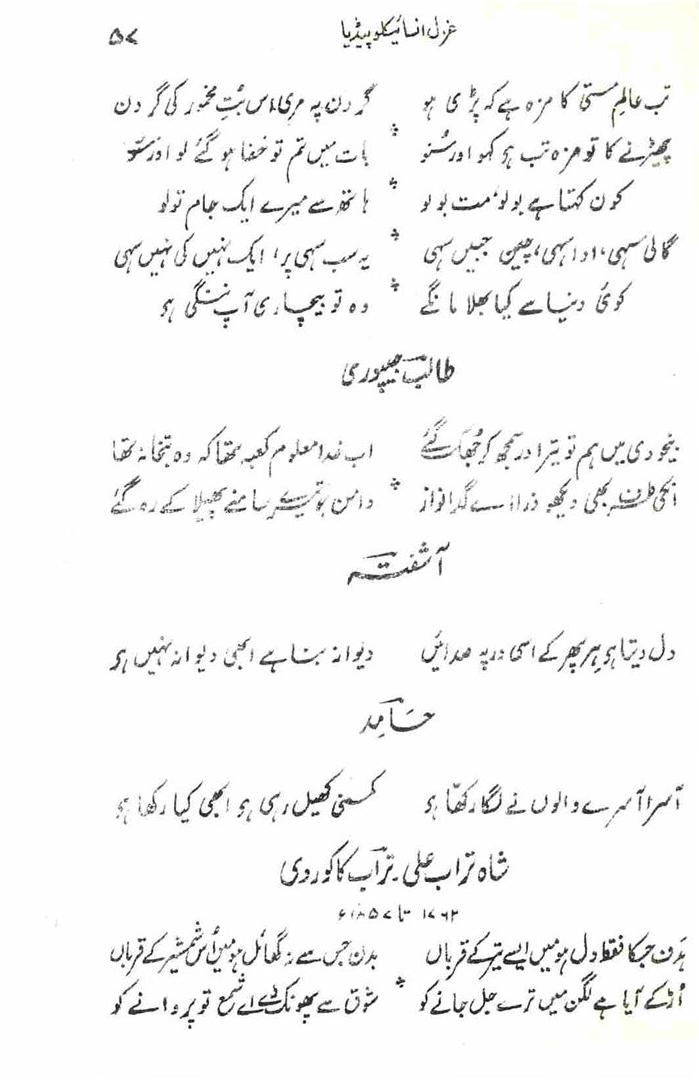 غزل انسائیکلوپیڈیا
۵۷
تب عالمِ مستی کا مزہ ہے کہ پڑی ہو گردن پہ مری اس بُتِ مخمور کی گردن
چھیڑنے کا تو مزہ تب ہو کہو اور سُنو بات میں تم تو خفا ہو گئے لو اور سُنو
کون کہتا ہے بولو مت بولو ہاتھ سے میرے ایک جام تو لو
گالی سہی، ادا سہی، چینِ جبیں سہی یہ سب سہی پر ایک نہیں کی نہیں سہی
کوئی دنیا سے کیا بھلا مانگے وہ تو بیچاری آپ ننگی ہو
طالب جیپوری
بیخودی میں ہم تو تیرا در سمجھ کر جھک گئے اب خدا معلوم کعبہ تھا کہ وہ بتخانہ تھا
بھی دیکھ ذرا اے گدا نواز دامن جو تیرے سامنے پھیلا کے رہ گئے
آشفتہ
دل دیتا ہو ہر پھر کے اسی در پہ صدائیں دیوانہ بنا ہے ابھی دیوانہ نہیں ہو
حامد
آسرا آسرے والوں نے لگا رکھّا ہو کمسنی کھیل رہی ہو ابھی کیا رکھا ہو
شاہ تراب علی۔ تراب کاکوروی
ہدف جسکا فقط دل ہو میں ایسے تیر کے قرباں بدن جس سے نہ گھائل ہو میں اُس شمشیر کے قرباں
اُڑ کے آیا ہے لگن میں ترے جل جانے کو شوق سے پھونک دے اے شمع تو پروانے کو